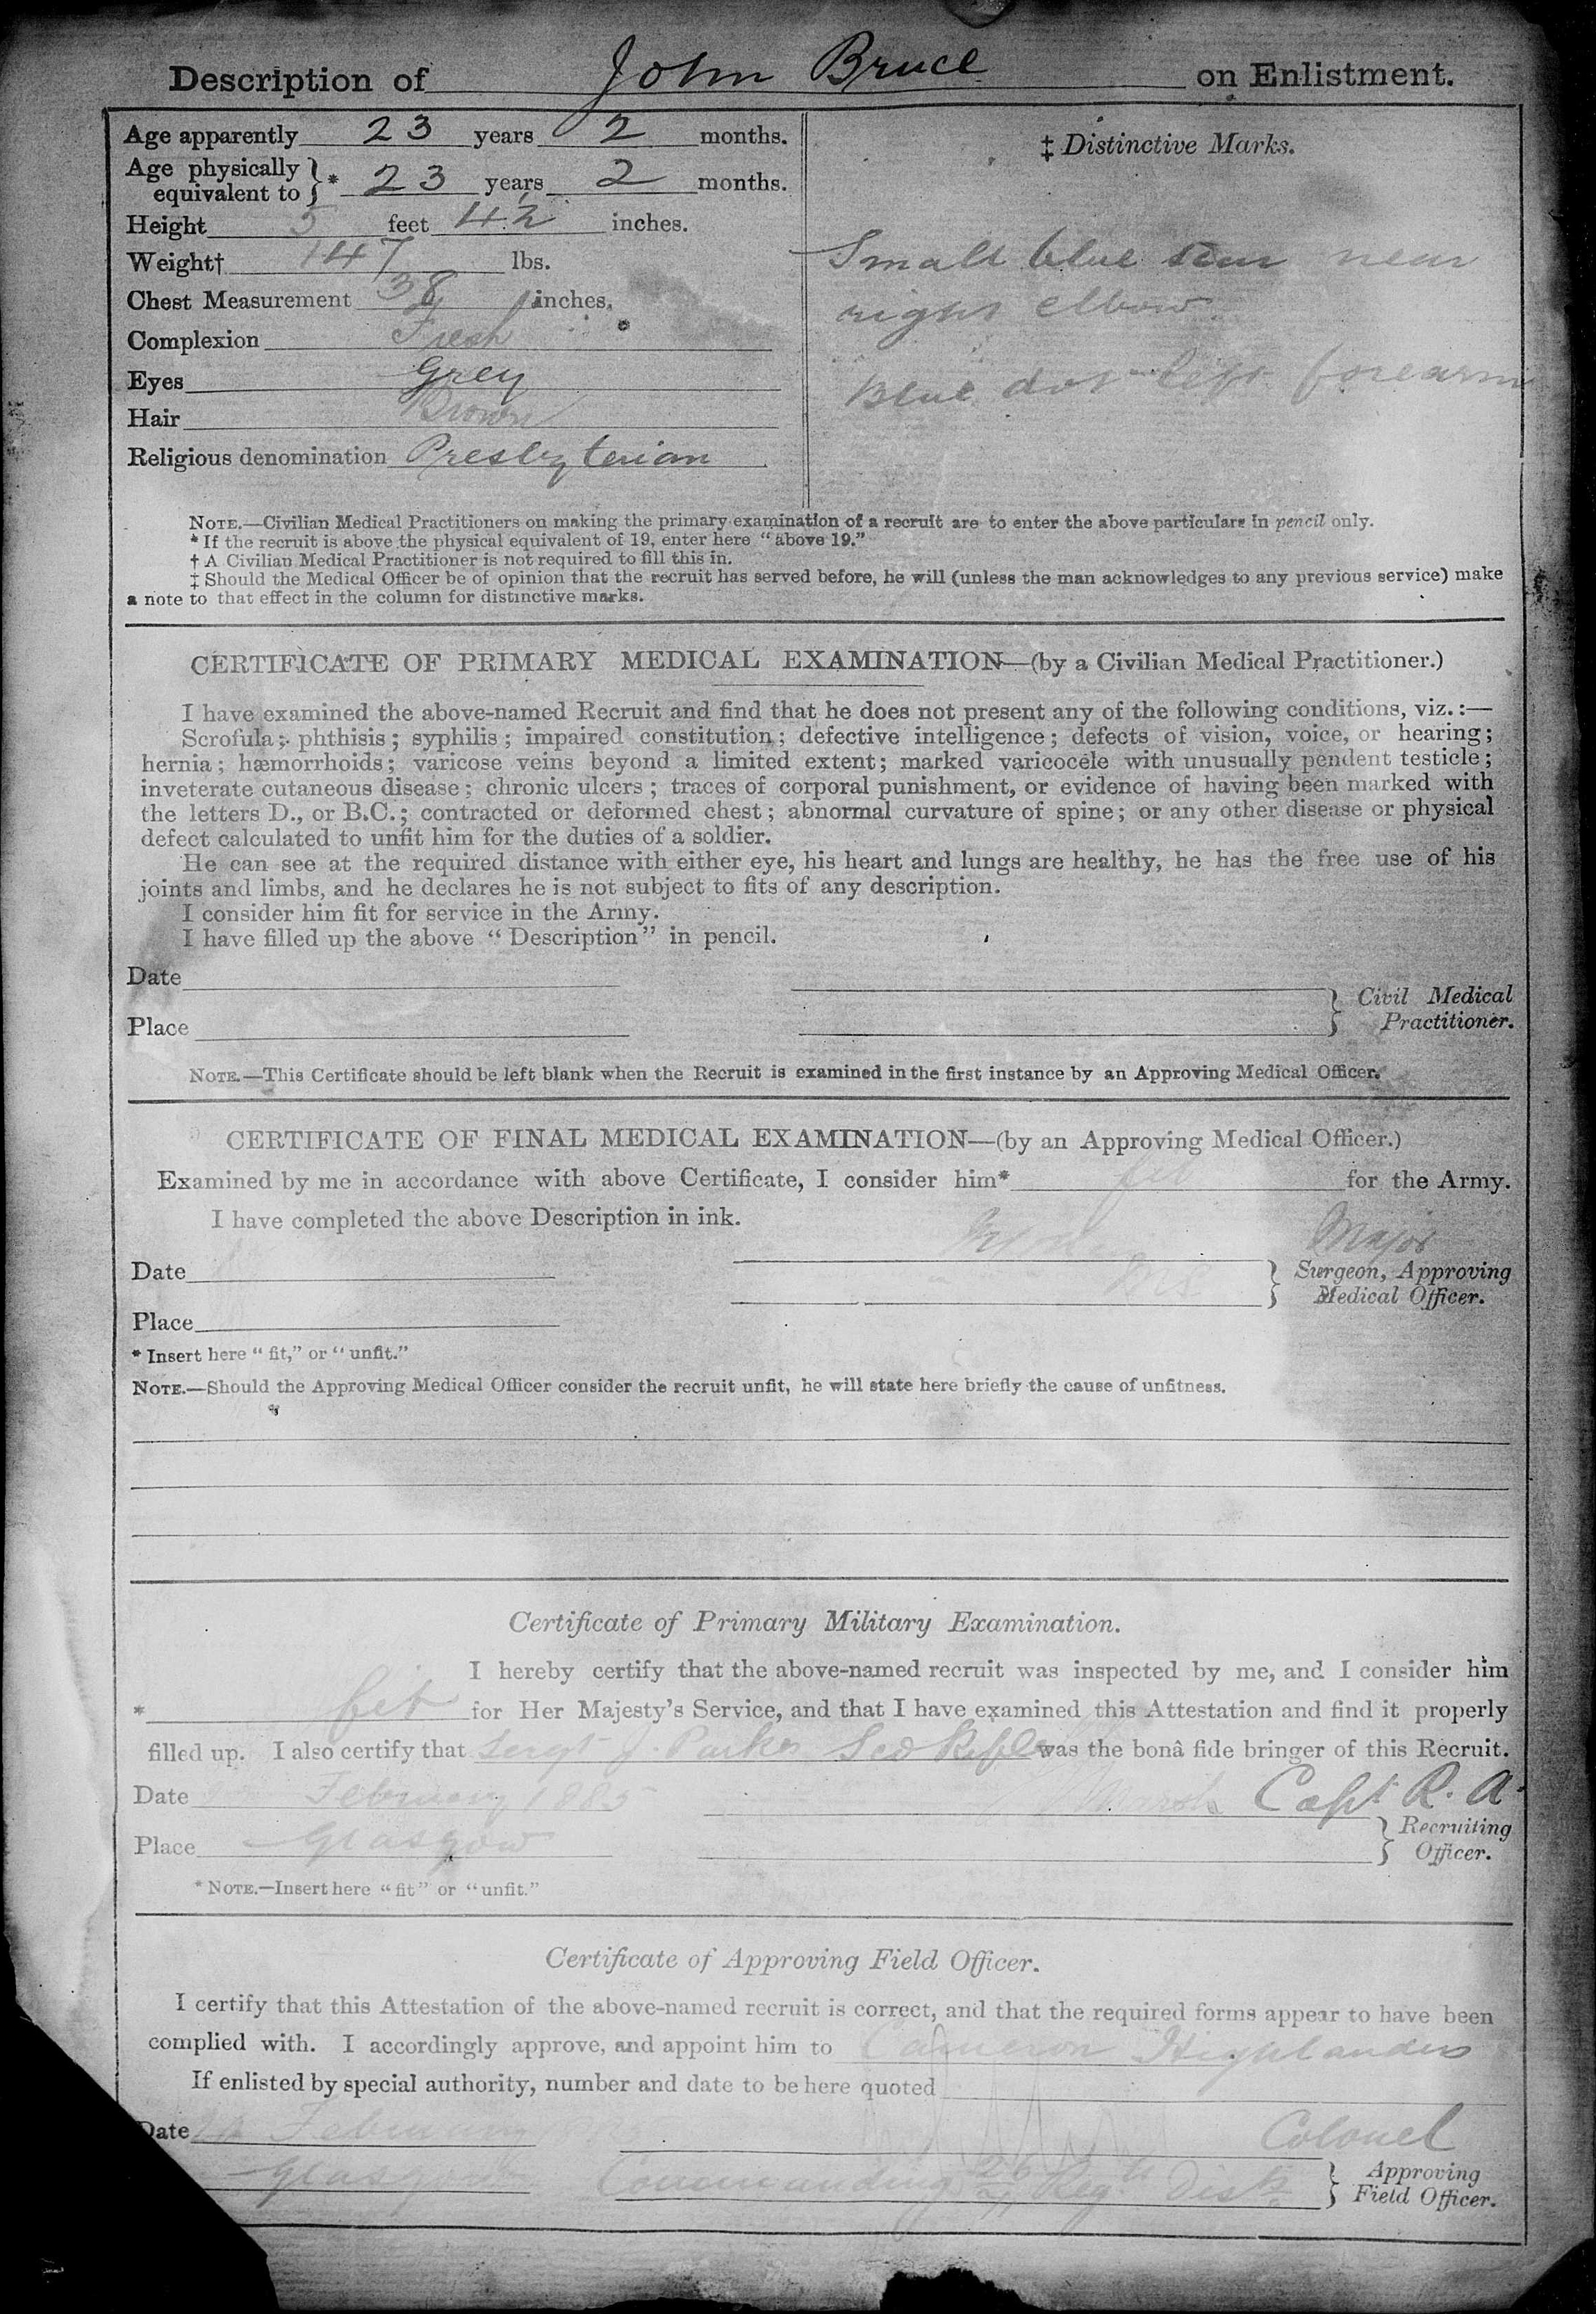 Description of John Bruce on Enlistment.
Age apparently 23 years 2 months.
Age physically equivalent to }* 23 years 2 months.
Height 5 feet 4½ inches.
Weight† 147 lbs.
Chest Measurement 38 inches.
Complexion Fresh
Eyes Grey
Hair Brown
Religious denomination Presbyterian
‡ Distinctive Marks.
Small blue scar near
right elbow.
Blue dot left forearm
NOTE.—Civilian Medical Practitioners on making the primary examination of a recruit are to enter the above particulars in pencil only.
* If the recruit is above the physical equivalent of 19, enter here "above 19."
† A Civilian Medical Practitioner is not required to fill this in.
‡ Should the Medical Officer be of opinion that the recruit has served before, he will (unless the man acknowledges to any previous service) make
a note to that effect in the column for distinctive marks.
CERTIFICATE OF PRIMARY MEDICAL EXAMINATION—(by a Civilian Medical Practitioner.)
I have examined the above-named Recruit and find that he does not present any of the following conditions, viz.:—
Scrofula; phthisis; syphilis; impaired constitution; defective intelligence; defects of vision, voice, or hearing;
hernia; hæmorrhoids; varicose veins beyond a limited extent; marked varicocele with unusually pendent testicle;
inveterate cutaneous disease; chronic ulcers; traces of corporal punishment, or evidence of having been marked with
the letters D., or B.C.; contracted or deformed chest; abnormal curvature of spine; or any other disease or physical
defect calculated to unfit him for the duties of a soldier.
He can see at the required distance with either eye, his heart and lungs are healthy, he has the free use of his
joints and limbs, and he declares he is not subject to fits of any description.
I consider him fit for service in the Army.
I have filled up the above "Description" in pencil.
Date
Place
} Civil Medical
Practitioner.
NOTE.—This Certificate should be left blank when the Recruit is examined in the first instance by an Approving Medical Officer.
CERTIFICATE OF FINAL MEDICAL EXAMINATION—(by an Approving Medical Officer.)
Examined by me in accordance with above Certificate, I consider him* fit for the Army.
I have completed the above Description in ink.
Major
Date
} Surgeon, Approving
Medical Officer.
Place
* Insert here "fit," or "unfit."
NOTE.—Should the Approving Medical Officer consider the recruit unfit, he will state here briefly the cause of unfitness.
Certificate of Primary Military Examination.
I hereby certify that the above-named recruit was inspected by me, and I consider him
* fit for Her Majesty's Service, and that I have examined this Attestation and find it properly
filled up. I also certify that Sergt J. Parker Sco Rifles was the bonâ fide bringer of this Recruit.
Date February 188 Marsh Capt R. A.
Place Glasgow
} Recruiting
Officer.
* NOTE.—Insert here "fit" or "unfit."
Certificate of Approving Field Officer.
I certify that this Attestation of the above-named recruit is correct, and that the required forms appear to have been
complied with. I accordingly approve, and appoint him to Cameron Highlanders
If enlisted by special authority, number and date to be here quoted
Date February Colonel
Glasgow Commanding 26 Regtl Dist.
} Approving
Field Officer.